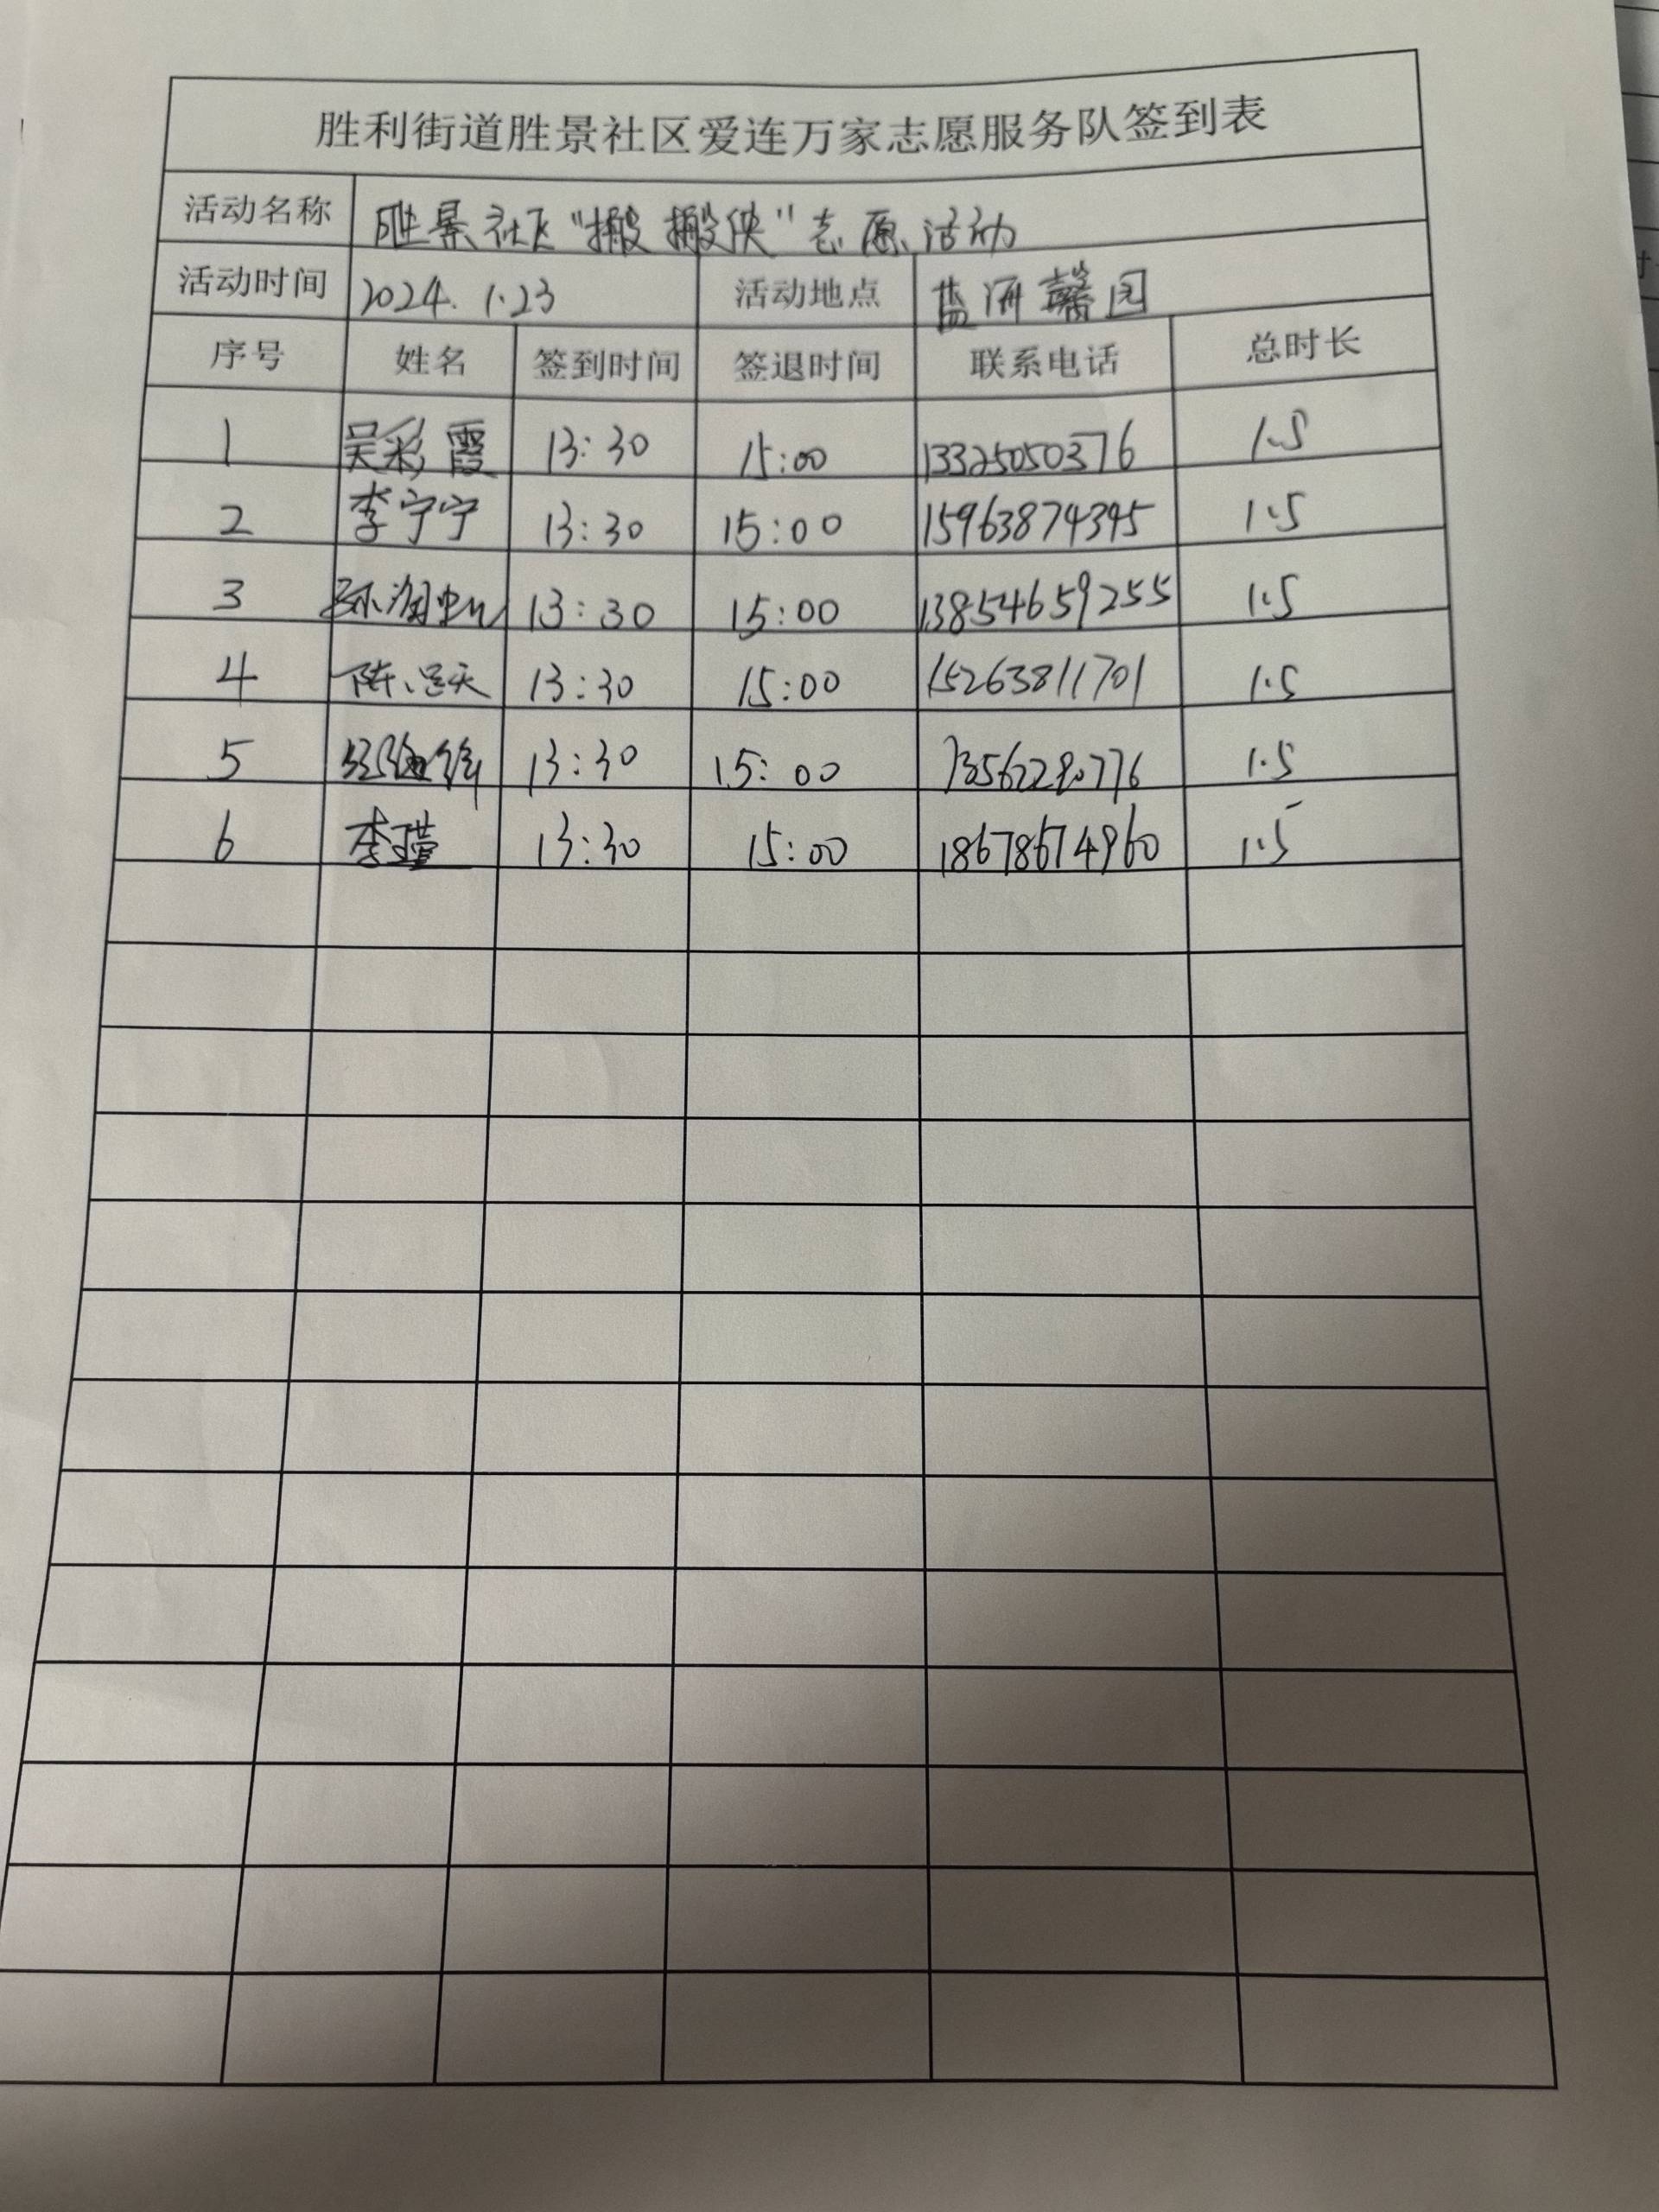 胜利街道胜景社区爱连万家志愿服务队签到表
活动名称 胜景社区“搬搬侠”志愿活动
活动时间 2024.1.23 活动地点 蓝海馨园
序号 姓名 签到时间 签退时间 联系电话 总时长
1 吴彩霞 13:30 15:00 13325050376 1.5
2 李宁宁 13:30 15:00 15963874395 1.5
3 13:30 15:00 13854659255 1.5
4 13:30 15:00 15263811701 1.5
5 13:30 15:00 1.5
6 李瑾 13:30 15:00 18678674960 1.5